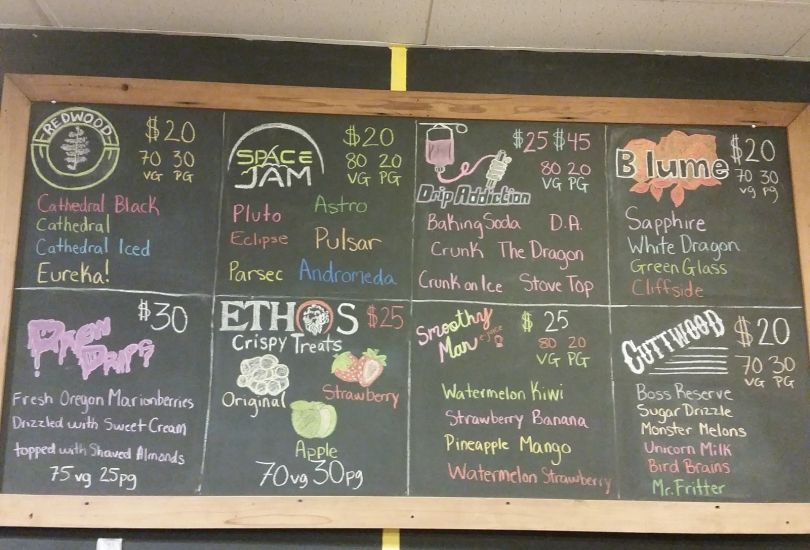 REDWOOD
$20
70 30
VG PG
Cathedral Black
Cathedral
Cathedral Iced
Eureka!
SPACE
JAM
$20
80 20
VG PG
Pluto Astro
Eclipse Pulsar
Parsec Andromeda
Drip Addiction
$25 $45
80 20
VG PG
Baking Soda D.A.
Crunk The Dragon
Crunk on Ice Stove Top
Blume
$20
70 30
vg pg
Sapphire
White Dragon
Green Glass
Cliffside
Drips
$30
Fresh Oregon Marionberries
Drizzled with Sweet Cream
topped with Shaved Almonds
75 vg 25 pg
ETHOS $25
Crispy Treats
Original
Strawberry
Apple
70vg 30pg
Smoothy
Man
$25
80 20
VG PG
Watermelon Kiwi
Strawberry Banana
Pineapple Mango
Watermelon Strawberry
CUTTWOOD
$20
70 30
VG PG
Boss Reserve
Sugar Drizzle
Monster Melons
Unicorn Milk
Bird Brains
Mr. Fritter